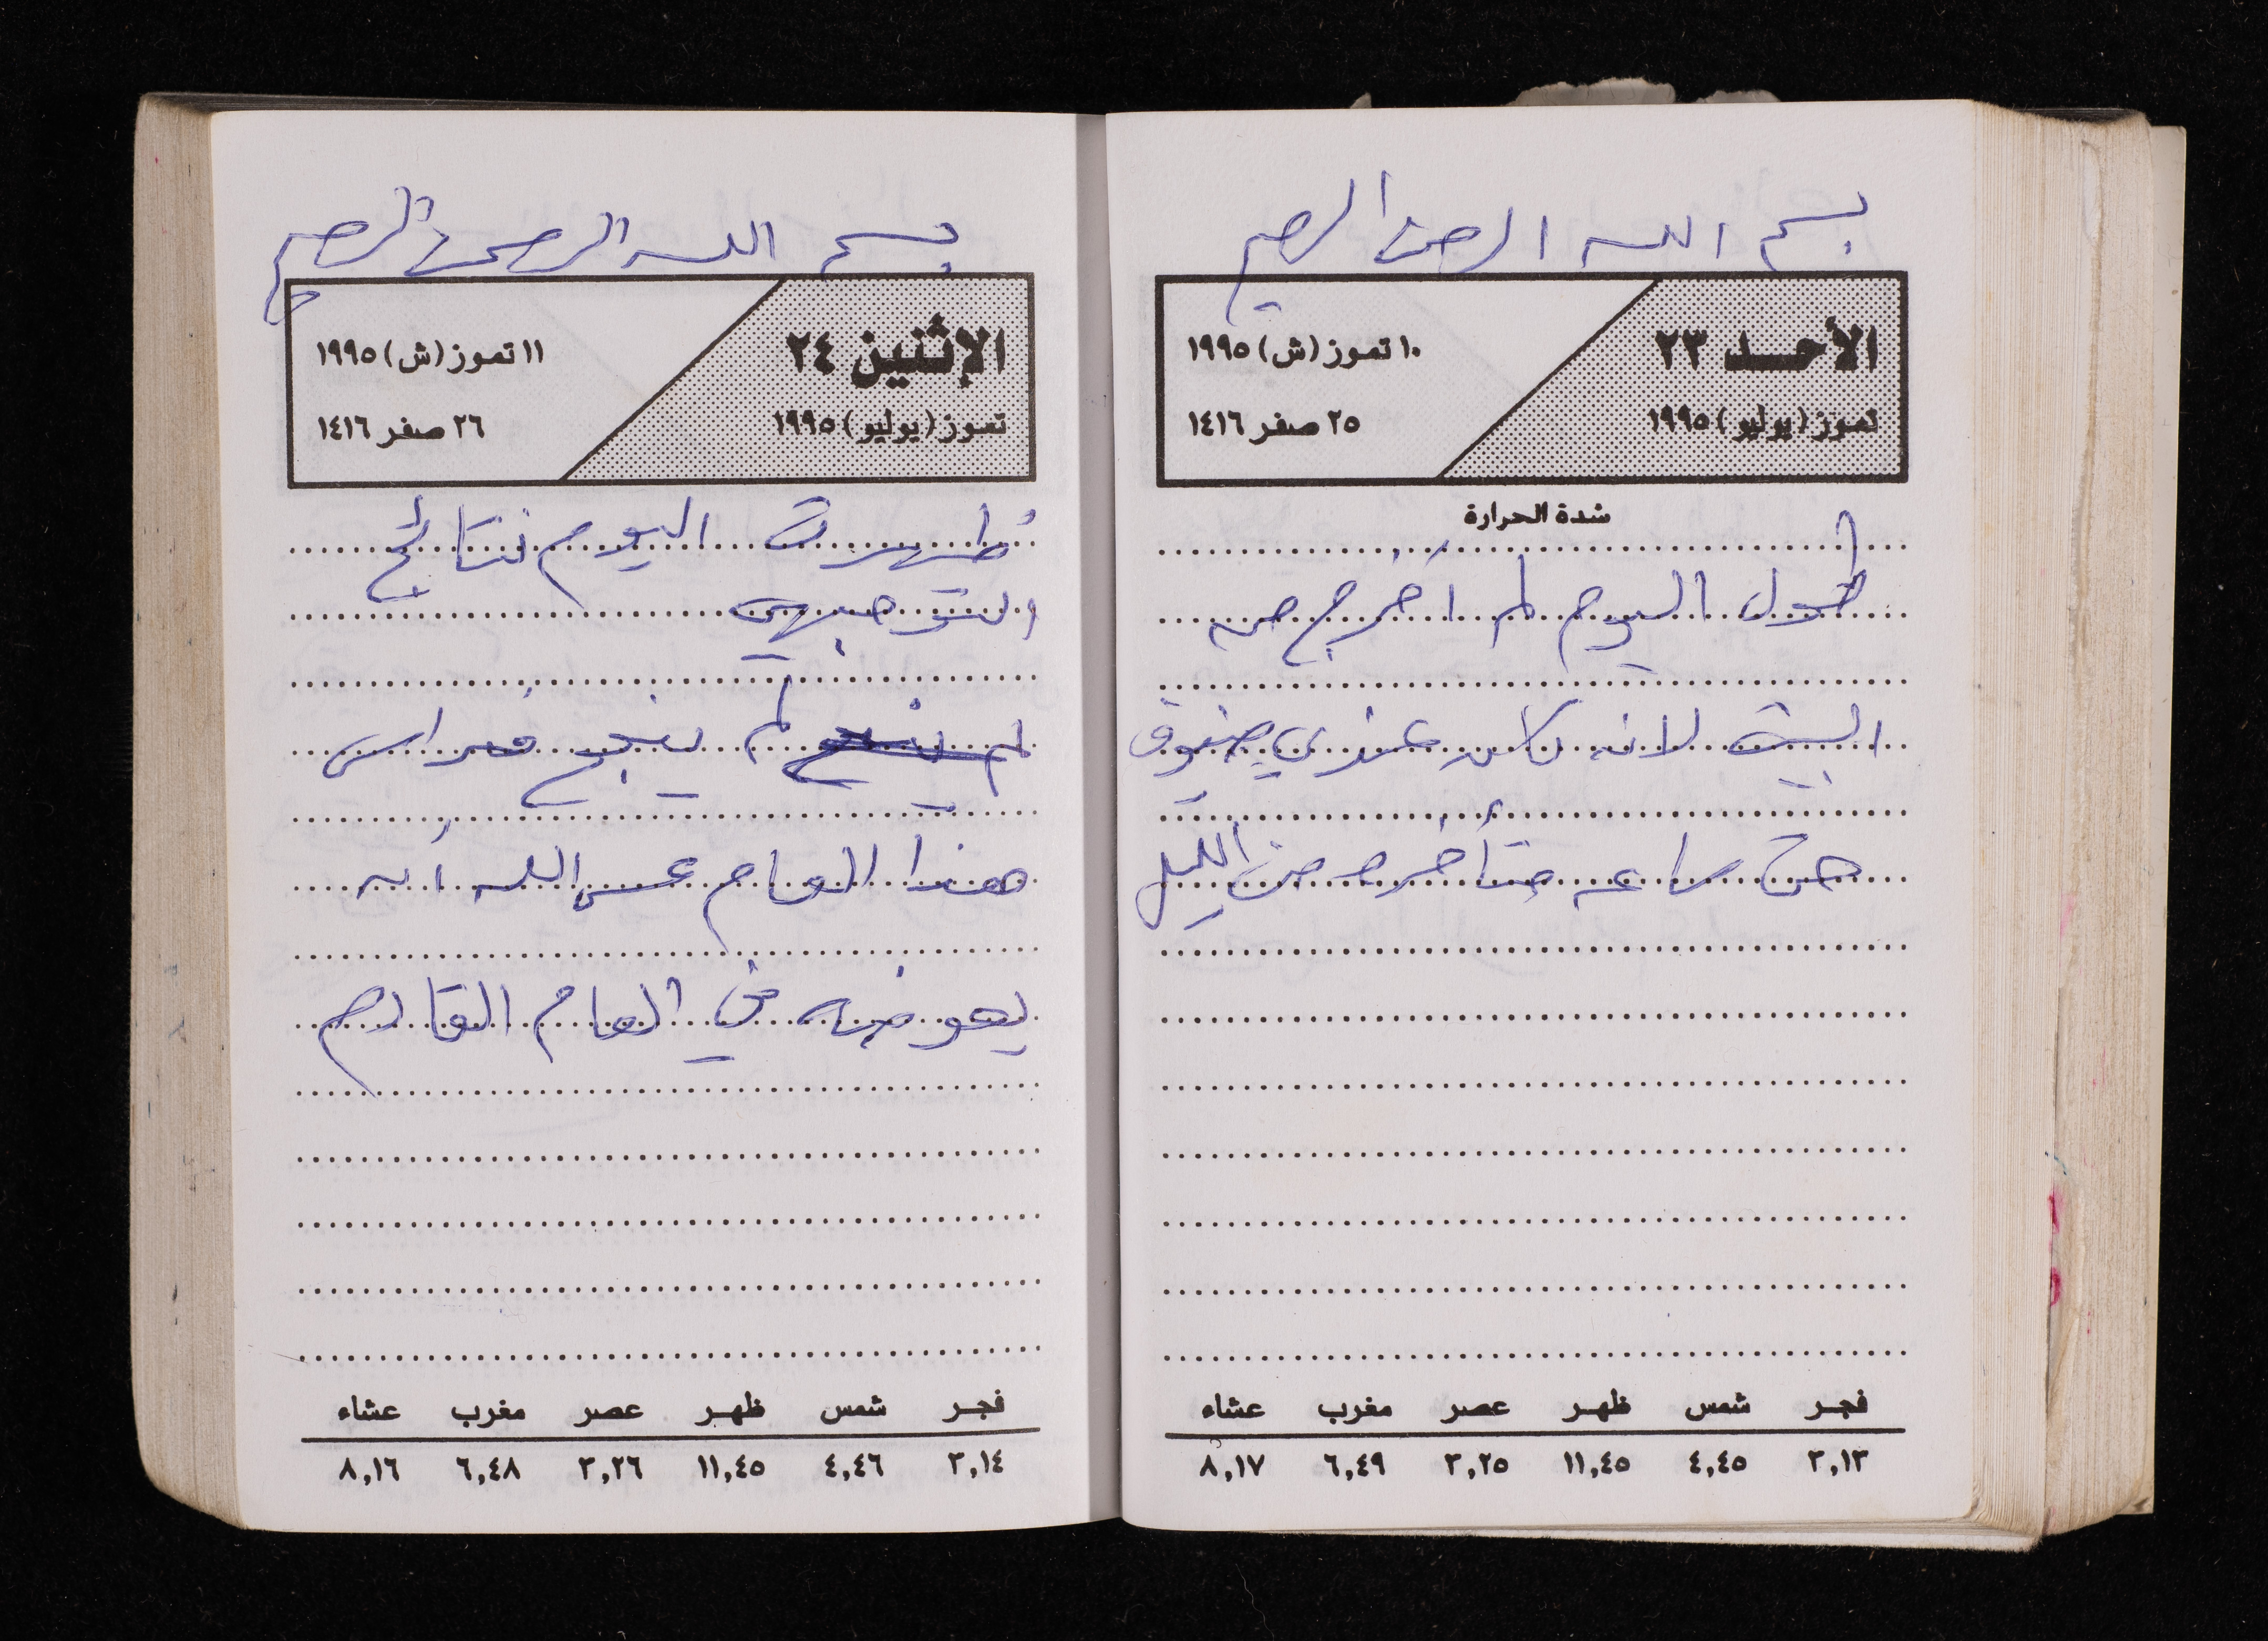 بسم الله الرحمن الرحيم
الأحد ٢٣
١٠ تموز (ش) ١٩٩٥
تموز (يوليو) ١٩٩٥
٢٥ صفر ١٤١٦
شدة الحرارة
طول اليوم لم اخرج من
البيت لانه كان عندي ضيوف
حتى ساعه متأخره من الليل
فجر شمس ظهر عصر مغرب عشاء
٣,١٣ ٤,٤٥ ١١,٤٥ ٣,٢٥ ٦,٤٩ ٨,١٧
بسم الله الرحمن الرحيم
الإثنين ٢٤
١١ تموز (ش) ١٩٩٥
تموز (يوليو) ١٩٩٥
٢٦ صفر ١٤١٦
ظهرت اليوم نتائج
التوجيهي
لم ينجح لم ينجح فراس
هذا العام عسى الله أن
يعوضه في العام القادم
فجر شمس ظهر عصر مغرب عشاء
٣,١٤ ٤,٤٦ ١١,٤٥ ٣,٢٦ ٦,٤٨ ٨,١٦